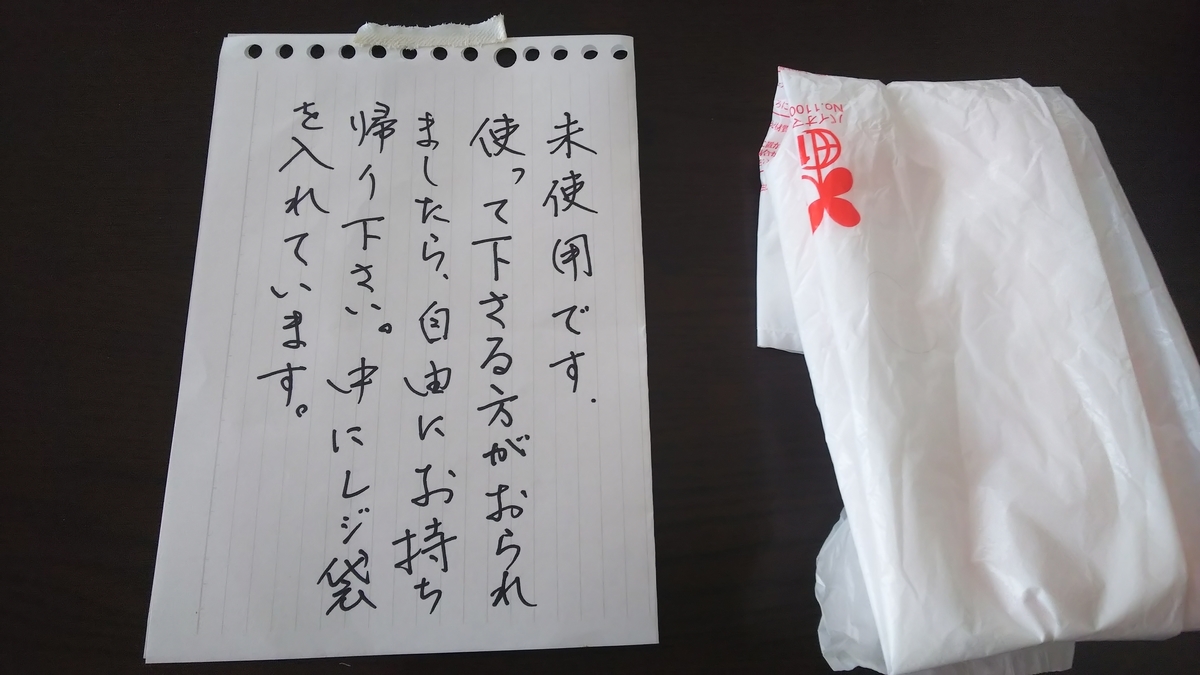 未使用です.
使って下さる方がおられ
ましたら、自由にお持ち
帰り下さい。中にレジ袋
を入れています。
バイオマス
No.1100